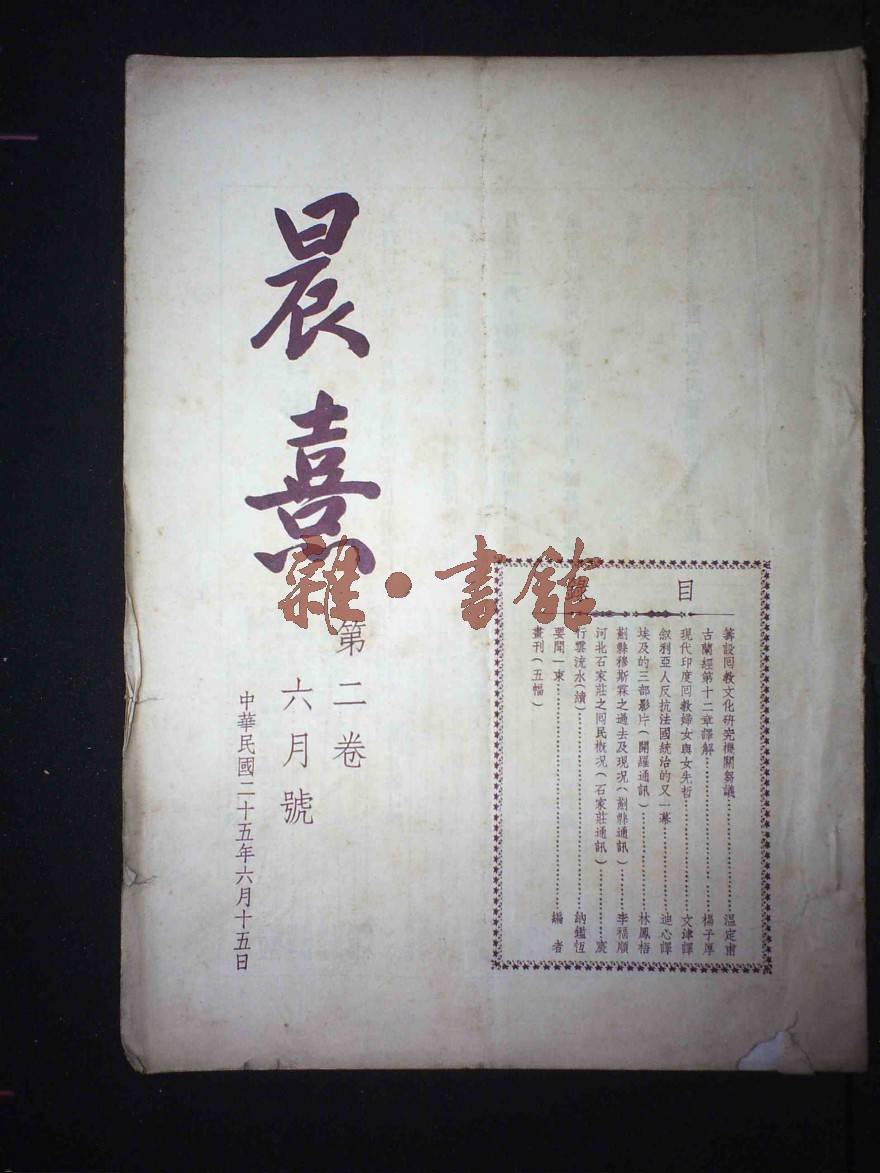 晨熹
第二卷
六月號
中華民國二十五年六月十五日
目錄
籌設回教文化研究機關芻議 溫定甫
古蘭經第十二章譯解 楊子厚
現代印度回教婦女與女先哲 文津譯
叙利亞人反抗法國統治的又一幕 迪心譯
埃及的三部影片(開羅通訊) 林鳳梧
薊縣穆斯霖之過去及現况(薊縣通訊) 李福順
河北石家莊之回民概况(石家莊通訊)
行雲流水(續) 納鑑恆
要聞一束 編者
畫刊(五幅)
雜·書館